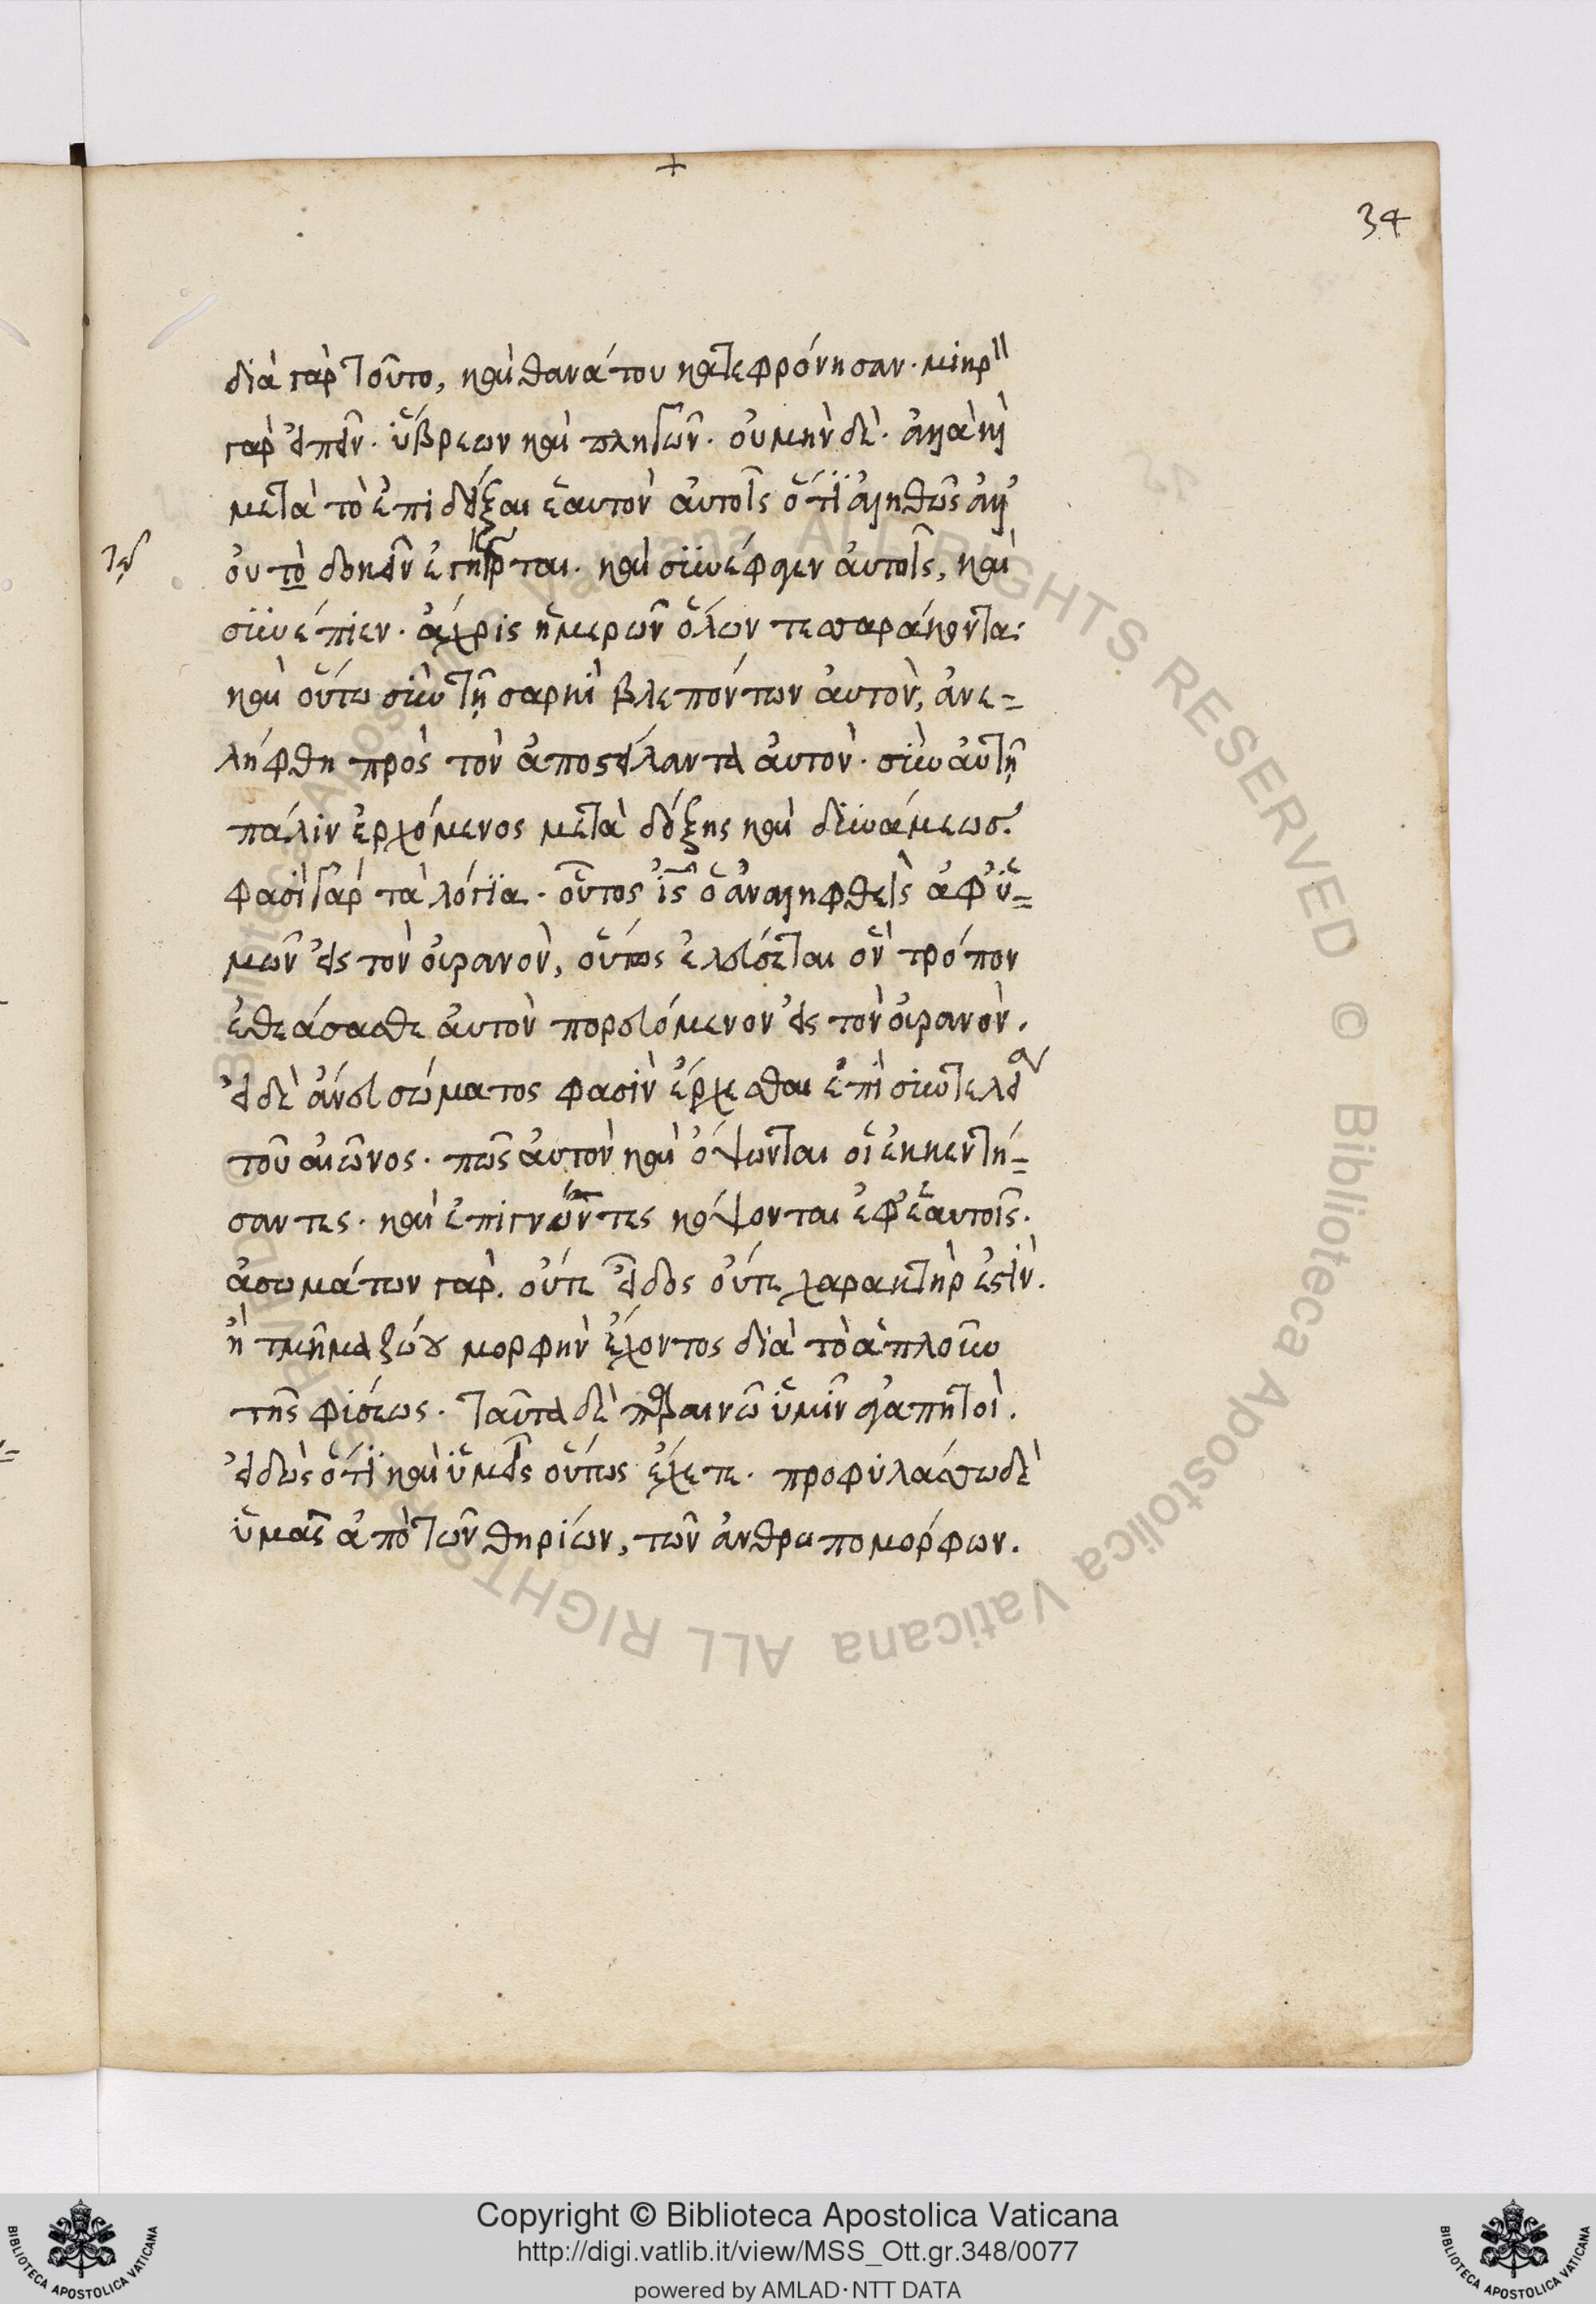 34
διὰ γὰρ τοῦτο, καὶ θανάτου κατεφρόνησαν. μικρ
γὰρ εἰπεῖν. ὕβρεων καὶ πληγῶν. οὐ μὴν δὲ. ἀλλὰ καὶ
μετὰ τὸ ἐπιδεῖξαι ἑαυτὸν αὐτοῖς ὅτι ἀληθῶς ἀλλ'
οὐ τὸ δοκεῖν ἐγήγερται. καὶ συνέφαγεν αὐτοῖς, καὶ
συνέπιεν. ἄχρις ἡμερῶν ὅλων τεσσαράκοντα:
καὶ οὕτω σὺν τῇ σαρκὶ βλεπόντων αὐτὸν, ἀνε=
λήφθη πρὸς τὸν ἀποστείλαντα αὐτὸν. σὺν αὐτῇ
πάλιν ἐρχόμενος μετὰ δόξης καὶ δυνάμεως.
φασὶ γὰρ τὰ λόγϊα. οὗτος ἰς ὁ ἀναληφθεὶς ἀφ' ὑ=
μῶν εἰς τὸν οὐρανὸν, οὕτως ἐλεύσεται ὃν τρόπον
ἐθεάσασθε αὐτὸν πορευόμενον εἰς τὸν οὐρανὸν.
εἰ δὲ ἄνευ σώματος φασὶν ἔρχεσθαι ἐπὶ συντελεία
τοῦ αἰῶνος. πῶς αὐτὸν καὶ ὄψωνται οἱ ἐκκεντή=
σαντες. καὶ ἐπιγνόντες κόψονται ἐφ' ἑαυτοῖς.
ἀσωμάτων γὰρ. οὔτε εἶδος οὔτε χαρακτὴρ ἐστὶν.
ἢ τμῆμα ζώου μορφὴν ἔχοντος διὰ τὸ ἁπλοῦν
τῆς φύσεως. ταῦτα δὲ παραινῶ ὑμῖν ἀγαπητοὶ.
εἰδὼς ὅτι καὶ ὑμεῖς οὕτως ἔχετε. προφυλάσσω δὲ
ὑμᾶς ἀπὸ τῶν θηρίων, τῶν ἀνθρωπομόρφων.
Copyright © Biblioteca Apostolica Vaticana
http://digi.vatlib.it/view/MSS_Ott.gr.348/0077
powered by AMLAD·NTT DATA